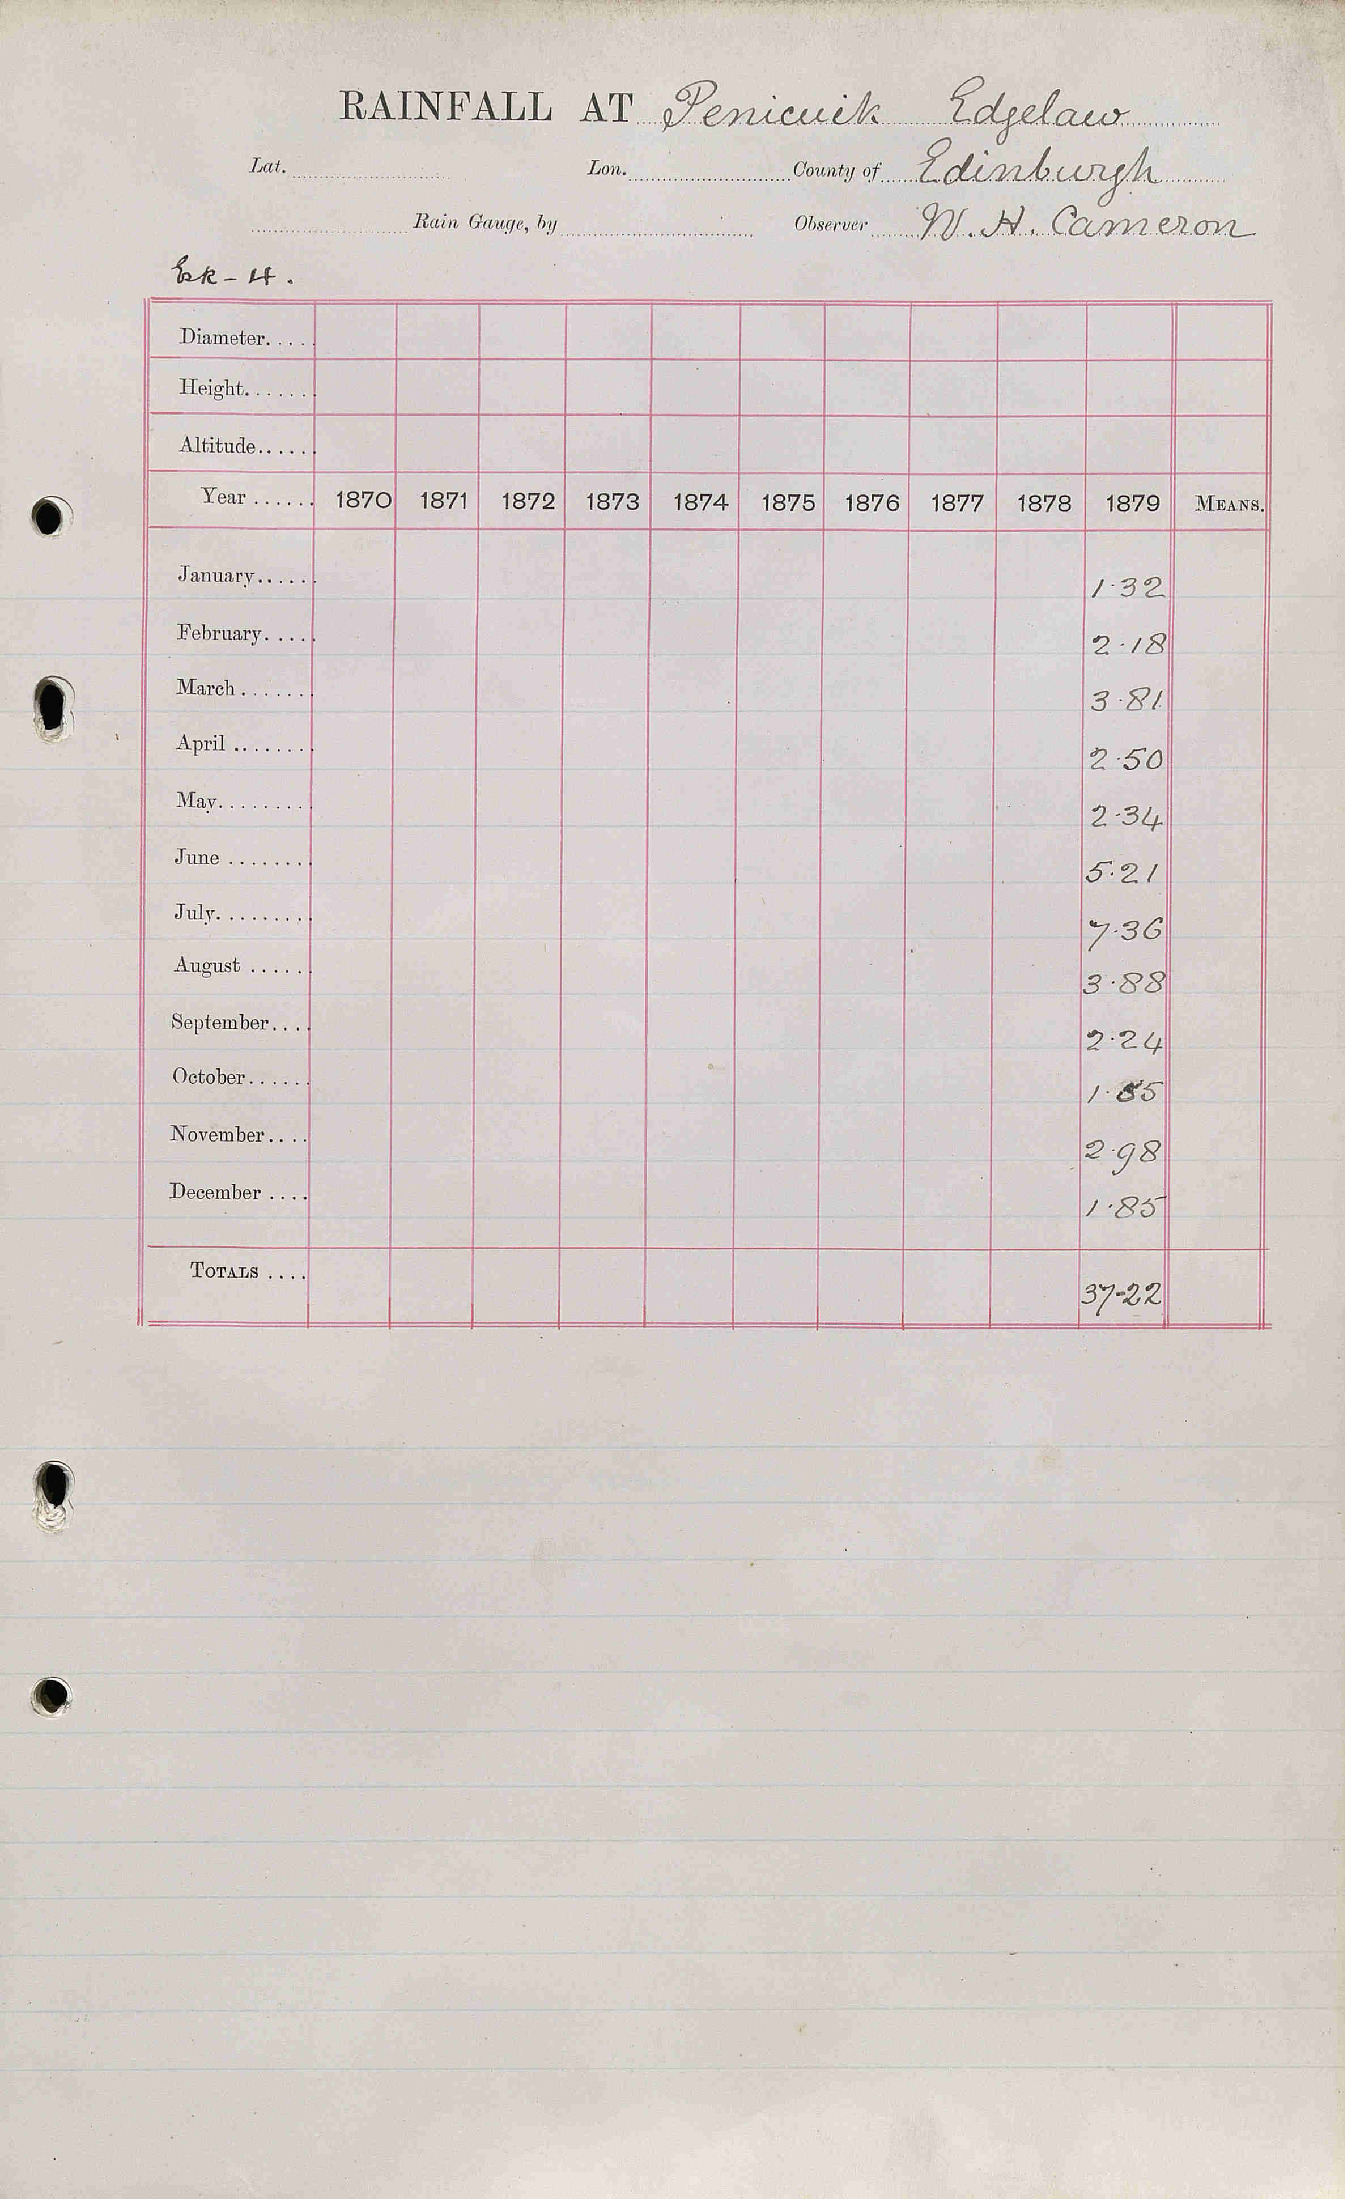 RAINFALL AT Penicuik Edgelaw
Lat. Lon. County of Edinburgh
Rain Gauge, by Observer W. H. Cameron
Diameter.....
Height.......
Altitude......
Year ...... 1870 1871 1872 1873 1874 1875 1876 1877 1878 1879 MEANS.
January...... 1.32
February..... 2.18
March ....... 3.81
April ........ 2.50
May......... 2.34
June ........ 5.21
July......... 7.36
August ...... 3.88
September.... 2.24
October...... 1.55
November.... 2.98
December .... 1.85
TOTALS .... 37.22